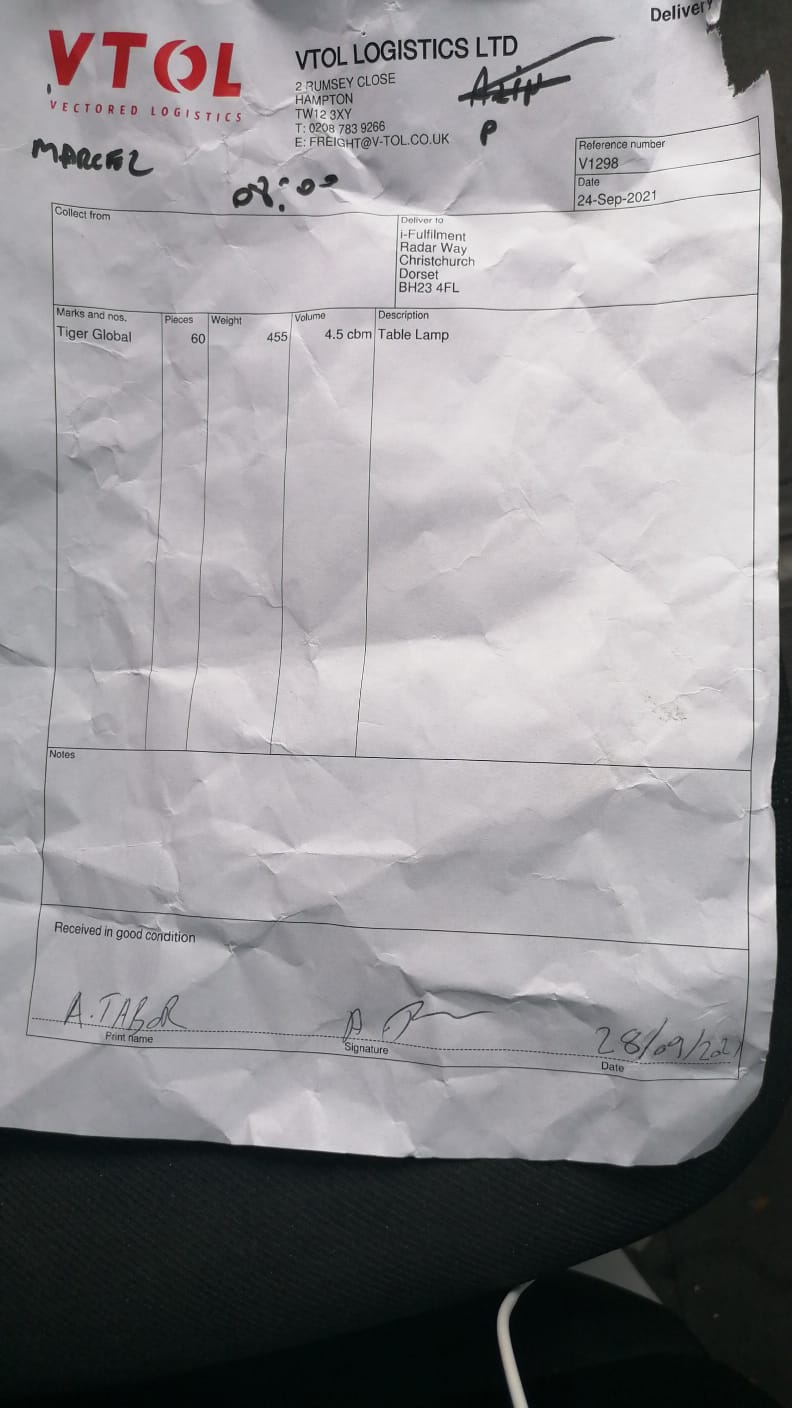 Delivery
VTOL
VECTORED LOGISTICS
VTOL LOGISTICS LTD
2 RUMSEY CLOSE
HAMPTON
TW12 3XY
T: 0208 783 9266
E: FREIGHT@V-TOL.CO.UK
P
08:00
Reference number
V1298
Date
24-Sep-2021
Collect from
Deliver to
i-Fulfilment
Radar Way
Christchurch
Dorset
BH23 4FL
Marks and nos. Pieces Weight Volume Description
Tiger Global 60 455 4.5 cbm Table Lamp
Notes
Received in good condition
A.TABOR 28/09/2021
Print name Signature Date